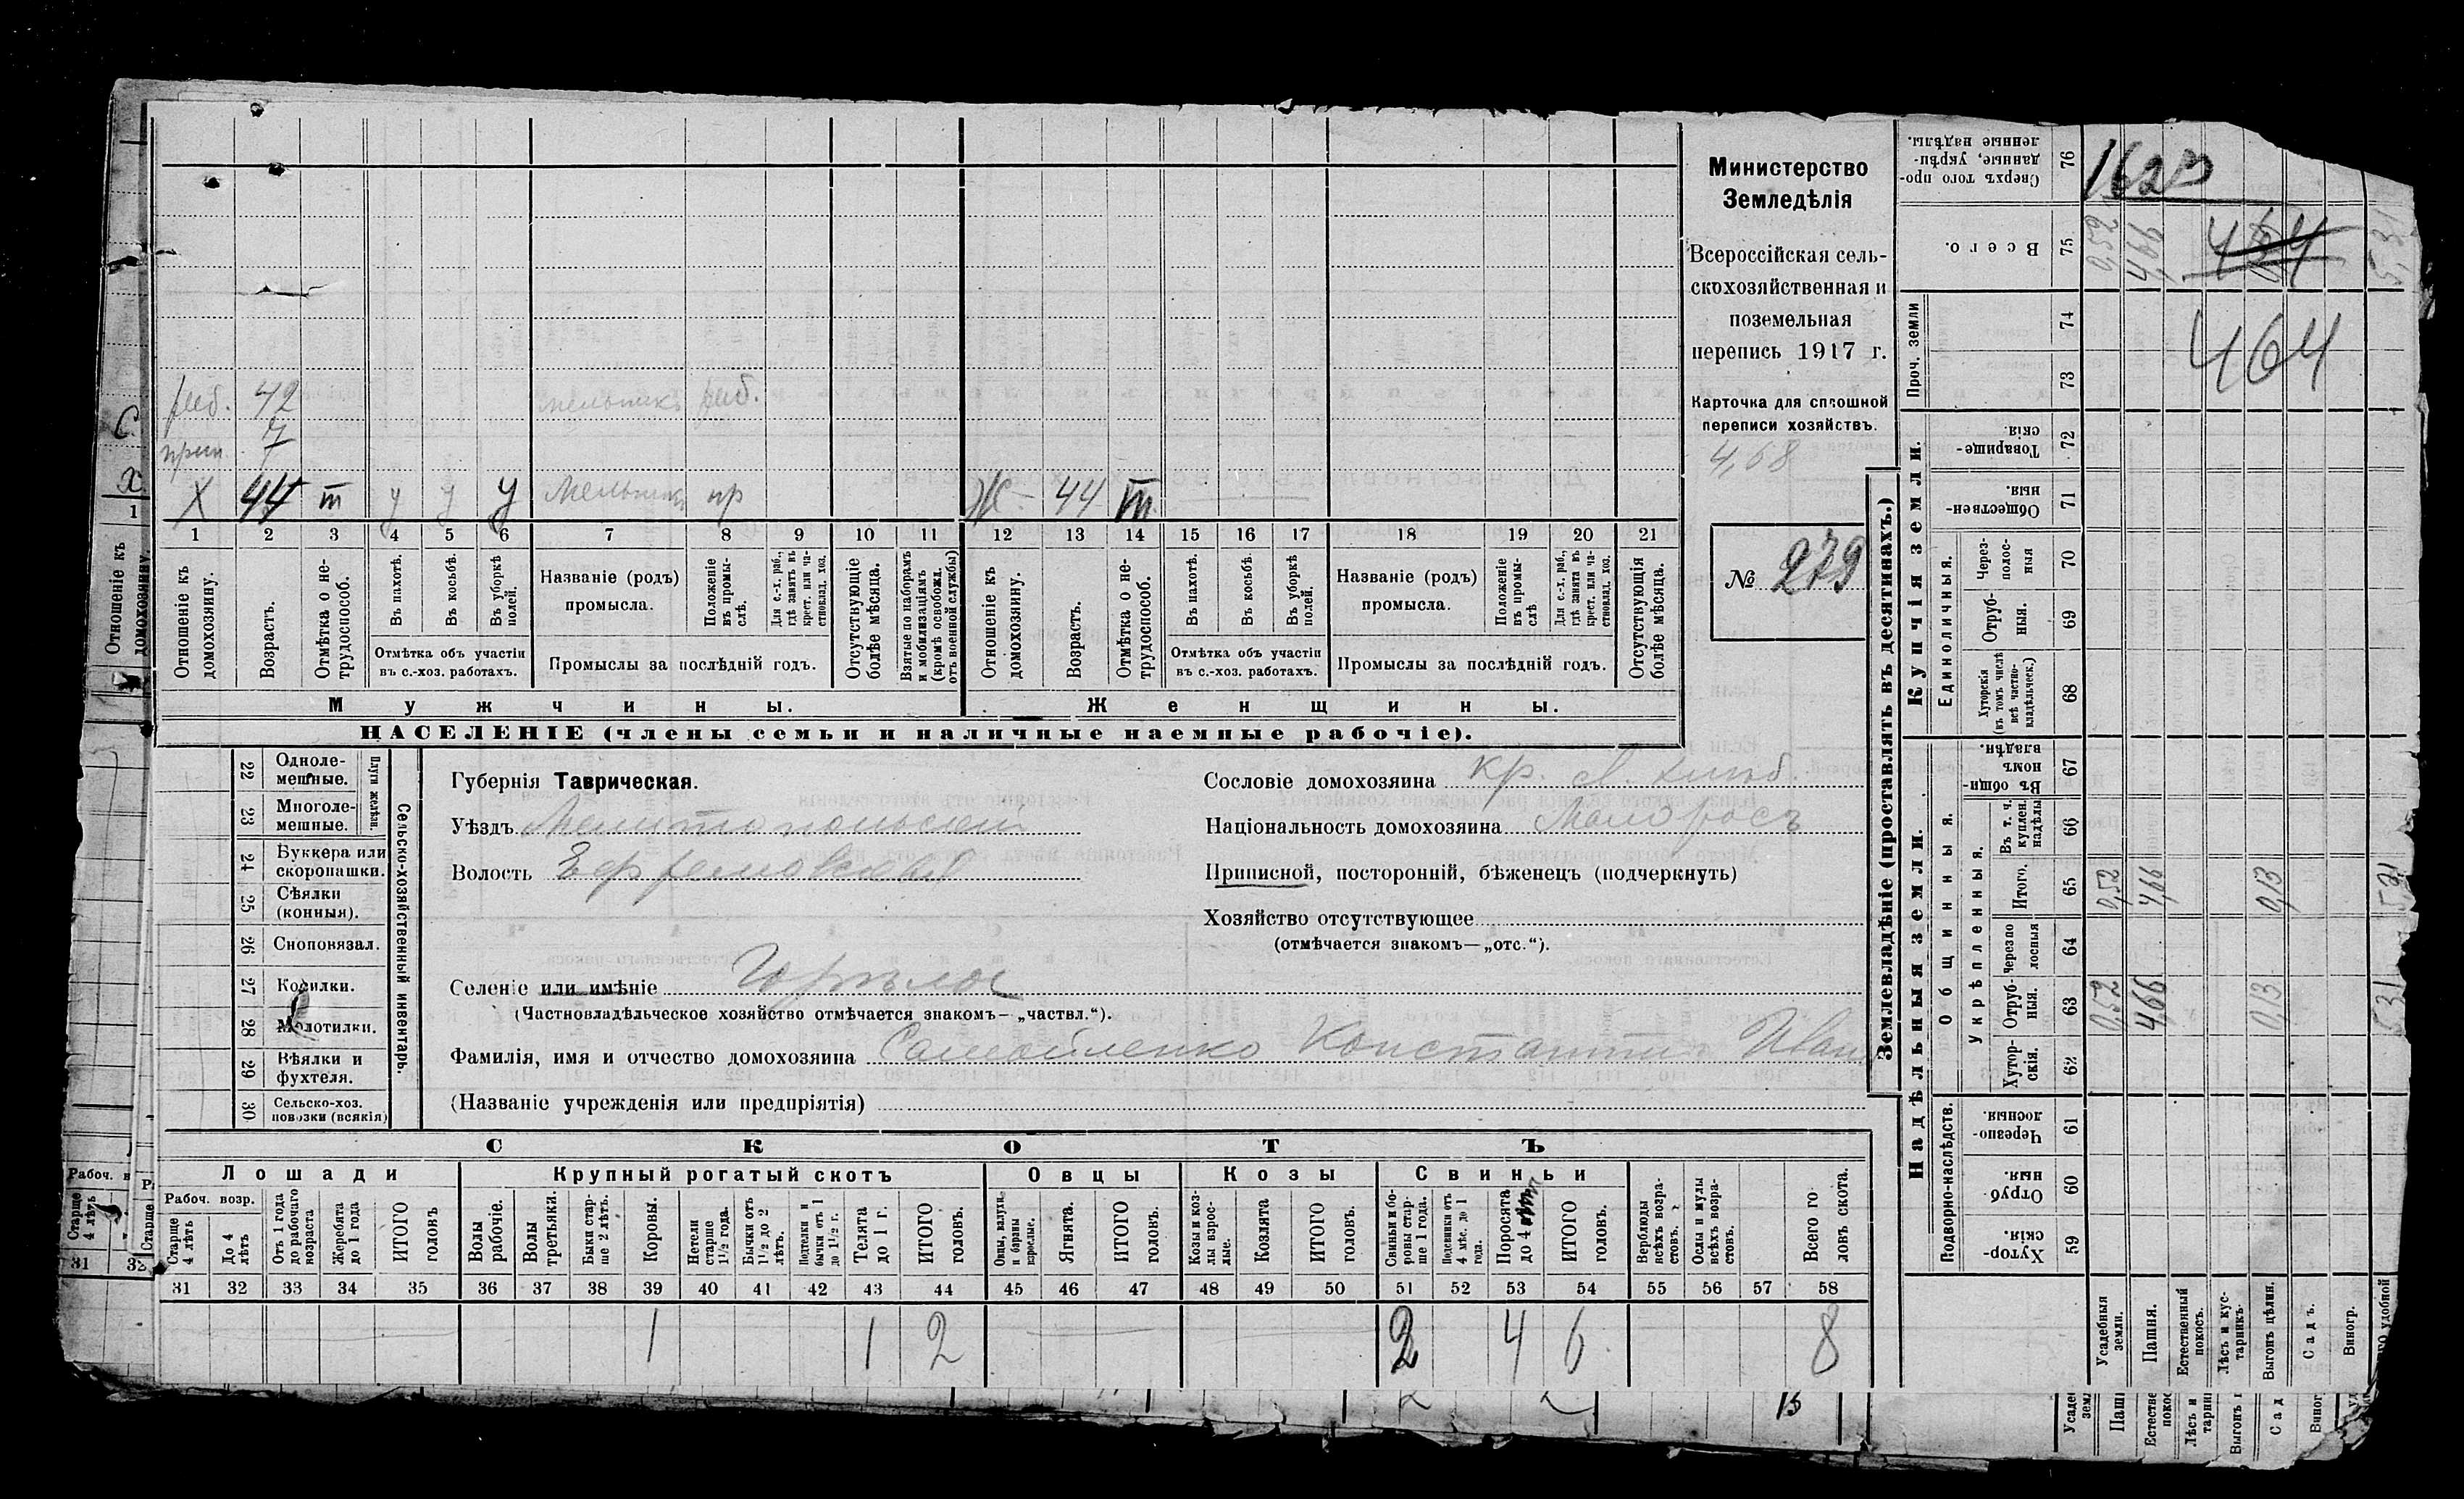 Министерство
Земледѣлія
Всероссійская сель-
скохозяйственная и
поземельная
перепись 1917 г.
Карточка для сплошной
переписи хозяйствъ.
4,68
№ 279
раб. 42 мельникъ раб.
7
Х 44 т у у у Мельникъ пр Ж 44 т
1 2 3 4 5 6 7 8 9 10 11 12 13 14 15 16 17 18 19 20 21
Отношеніе къ домохозяину.
Возрастъ.
Отмѣтка о не-трудоспособ.
Въ пахотѣ.
Въ косьбѣ.
Въ уборкѣ полей.
Отмѣтка объ участіи въ с.-хоз. работахъ.
Названіе (родъ) промысла.
Положеніе въ промы-слѣ.
Для с.-х. раб., гдѣ занятъ въ крест. или ча-стновлад. хоз.
Промыслы за послѣдній годъ.
Отсутствующіе болѣе мѣсяца.
Взятые по наборамъ и мобилизаціямъ (кромѣ освобожд. отъ военной службы)
Отношеніе къ домохозяину.
Возрастъ.
Отмѣтка о не-трудоспособ.
Въ пахотѣ.
Въ косьбѣ.
Въ уборкѣ полей.
Отмѣтка объ участіи въ с.-хоз. работахъ.
Названіе (родъ) промысла.
Положеніе въ промы-слѣ
Для с.-х. раб., гдѣ занятъ въ крест. или ча-стновлад. хоз.
Промыслы за послѣдній годъ.
Отсутствующія болѣе мѣсяца.
Мужчины. Женщины.
НАСЕЛЕНІЕ (члены семьи и наличные наемные рабочіе).
22 Одноле-мешные.
23 Многоле-мешные.
Плуги желѣзн.
24 Буккера или скоропашки.
25 Сѣялки (конныя).
26 Сноповязал.
27 Косилки.
28 Молотилки.
29 Вѣялки и фухтеля.
30 Сельско-хоз. повозки (всякія)
Сельско-хозяйственный инвентарь.
Губернія Таврическая.
Уѣздъ Мелитопольскій
Волость Ефремовская
Селеніе или имѣніе Горѣлое
(Частновладѣльческое хозяйство отмѣчается знакомъ— „частвл.“).
Фамилія, имя и отчество домохозяина Самойленко Константинъ Иван
(Названіе учрежденія или предпріятія)
Сословіе домохозяина кр.
Національность домохозяина Малоросъ
Приписной, посторонній, бѣженецъ (подчеркнуть)
Хозяйство отсутствующее
(отмѣчается знакомъ—„отс.“).
СКОТЪ
Лошади Крупный рогатый скотъ Овцы Козы Свиньи
Рабоч. возр.
Старше 4 лѣтъ
До 4 лѣтъ
Отъ 1 года до рабочаго возраста
Жеребята до 1 года
ИТОГО головъ
Волы рабочіе.
Волы третьяки.
Быки стар-ше 2 лѣтъ.
Коровы.
Нетели старше 1 1/2 года.
Бычки отъ 1 1/2 до 2 лѣтъ.
Подтелки и бычки отъ 1 до 1 1/2 г.
Телята до 1 г.
ИТОГО головъ.
Овцы, валухи и бараны взрослые.
Ягнята.
ИТОГО головъ.
Козы и коз-лы взрос-лые.
Козлята
ИТОГО головъ.
Свиньи и бо-ровы стар-ше 1 года.
Подсвинки отъ 4 мѣс. до 1 года.
Поросята до 4
ИТОГО головъ.
Верблюды всѣхъ возра-стовъ.
Ослы и мулы всѣхъ возра-стовъ.
Всего го ловъ скота.
31 32 33 34 35 36 37 38 39 40 41 42 43 44 45 46 47 48 49 50 51 52 53 54 55 56 57 58
1 1 2 2 4 6 8
Землевладѣніе (проставлять въ десятинахъ.)
Надѣльныя земли. Купчія земли.
Подворно-наслѣдств.
Общинныя.
Укрѣпленныя.
Единоличныя.
Проч. земли
59 Хутор-скія.
60 Отруб-ныя.
61 Черезпо-лосныя.
62 Хутор-скія.
63 Отруб-ныя. 0,52 4,66 0,13 5,31
64 Черезпо лосныя
65 Итого. 0,52 4,66 0,13 5,31
66 Въ т. ч. куплен. надѣлы
67 Въ общин-номъ владѣн.
68 Хуторскія (въ томъ числѣ всѣ частно-владѣльческ.)
69 Отруб-ныя.
70 Через-полос-ныя
71 Обществен-ныя.
72 Товарище-скія.
73
74
464
75 Всего. 0,52 4,66 5,31
76 Сверхъ того про-данные, укрѣп-ленные надѣлы.
Усадебныя земли.
Пашня.
Естественный покосъ.
Лѣсъ и кус-тарникъ.
Выгонъ цѣлин.
Садъ.
Виногр.